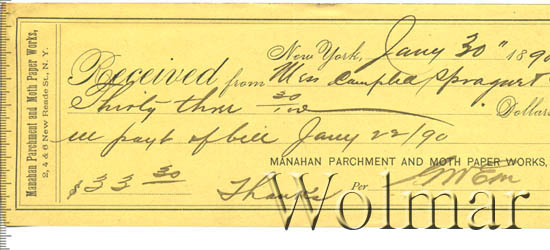 Manahan Parchment and Moth Paper Works,
2, 4 & 6 New Reade St., N. Y.
New York, Jany 30" 1890
Received from Mess Campbell Sprague &
Thirty three 30/100 Dollars
in payt of bill Jany 22/90
MANAHAN PARCHMENT AND MOTH PAPER WORKS,
$33 30 Thanks Per
Wolmar